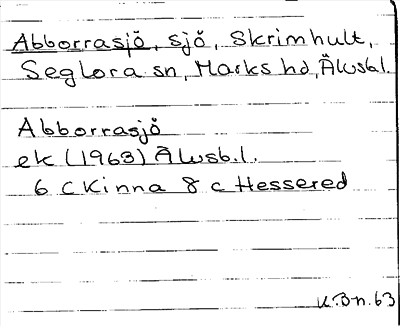 Abborrasjö, sjö, Skrimhult,
Seglora sn, Marks hd, Älvsbl.
Abborrasjö
ek (1963) Älvsb.l.
6 C Kinna 8 c Hessered
K.Bn.63